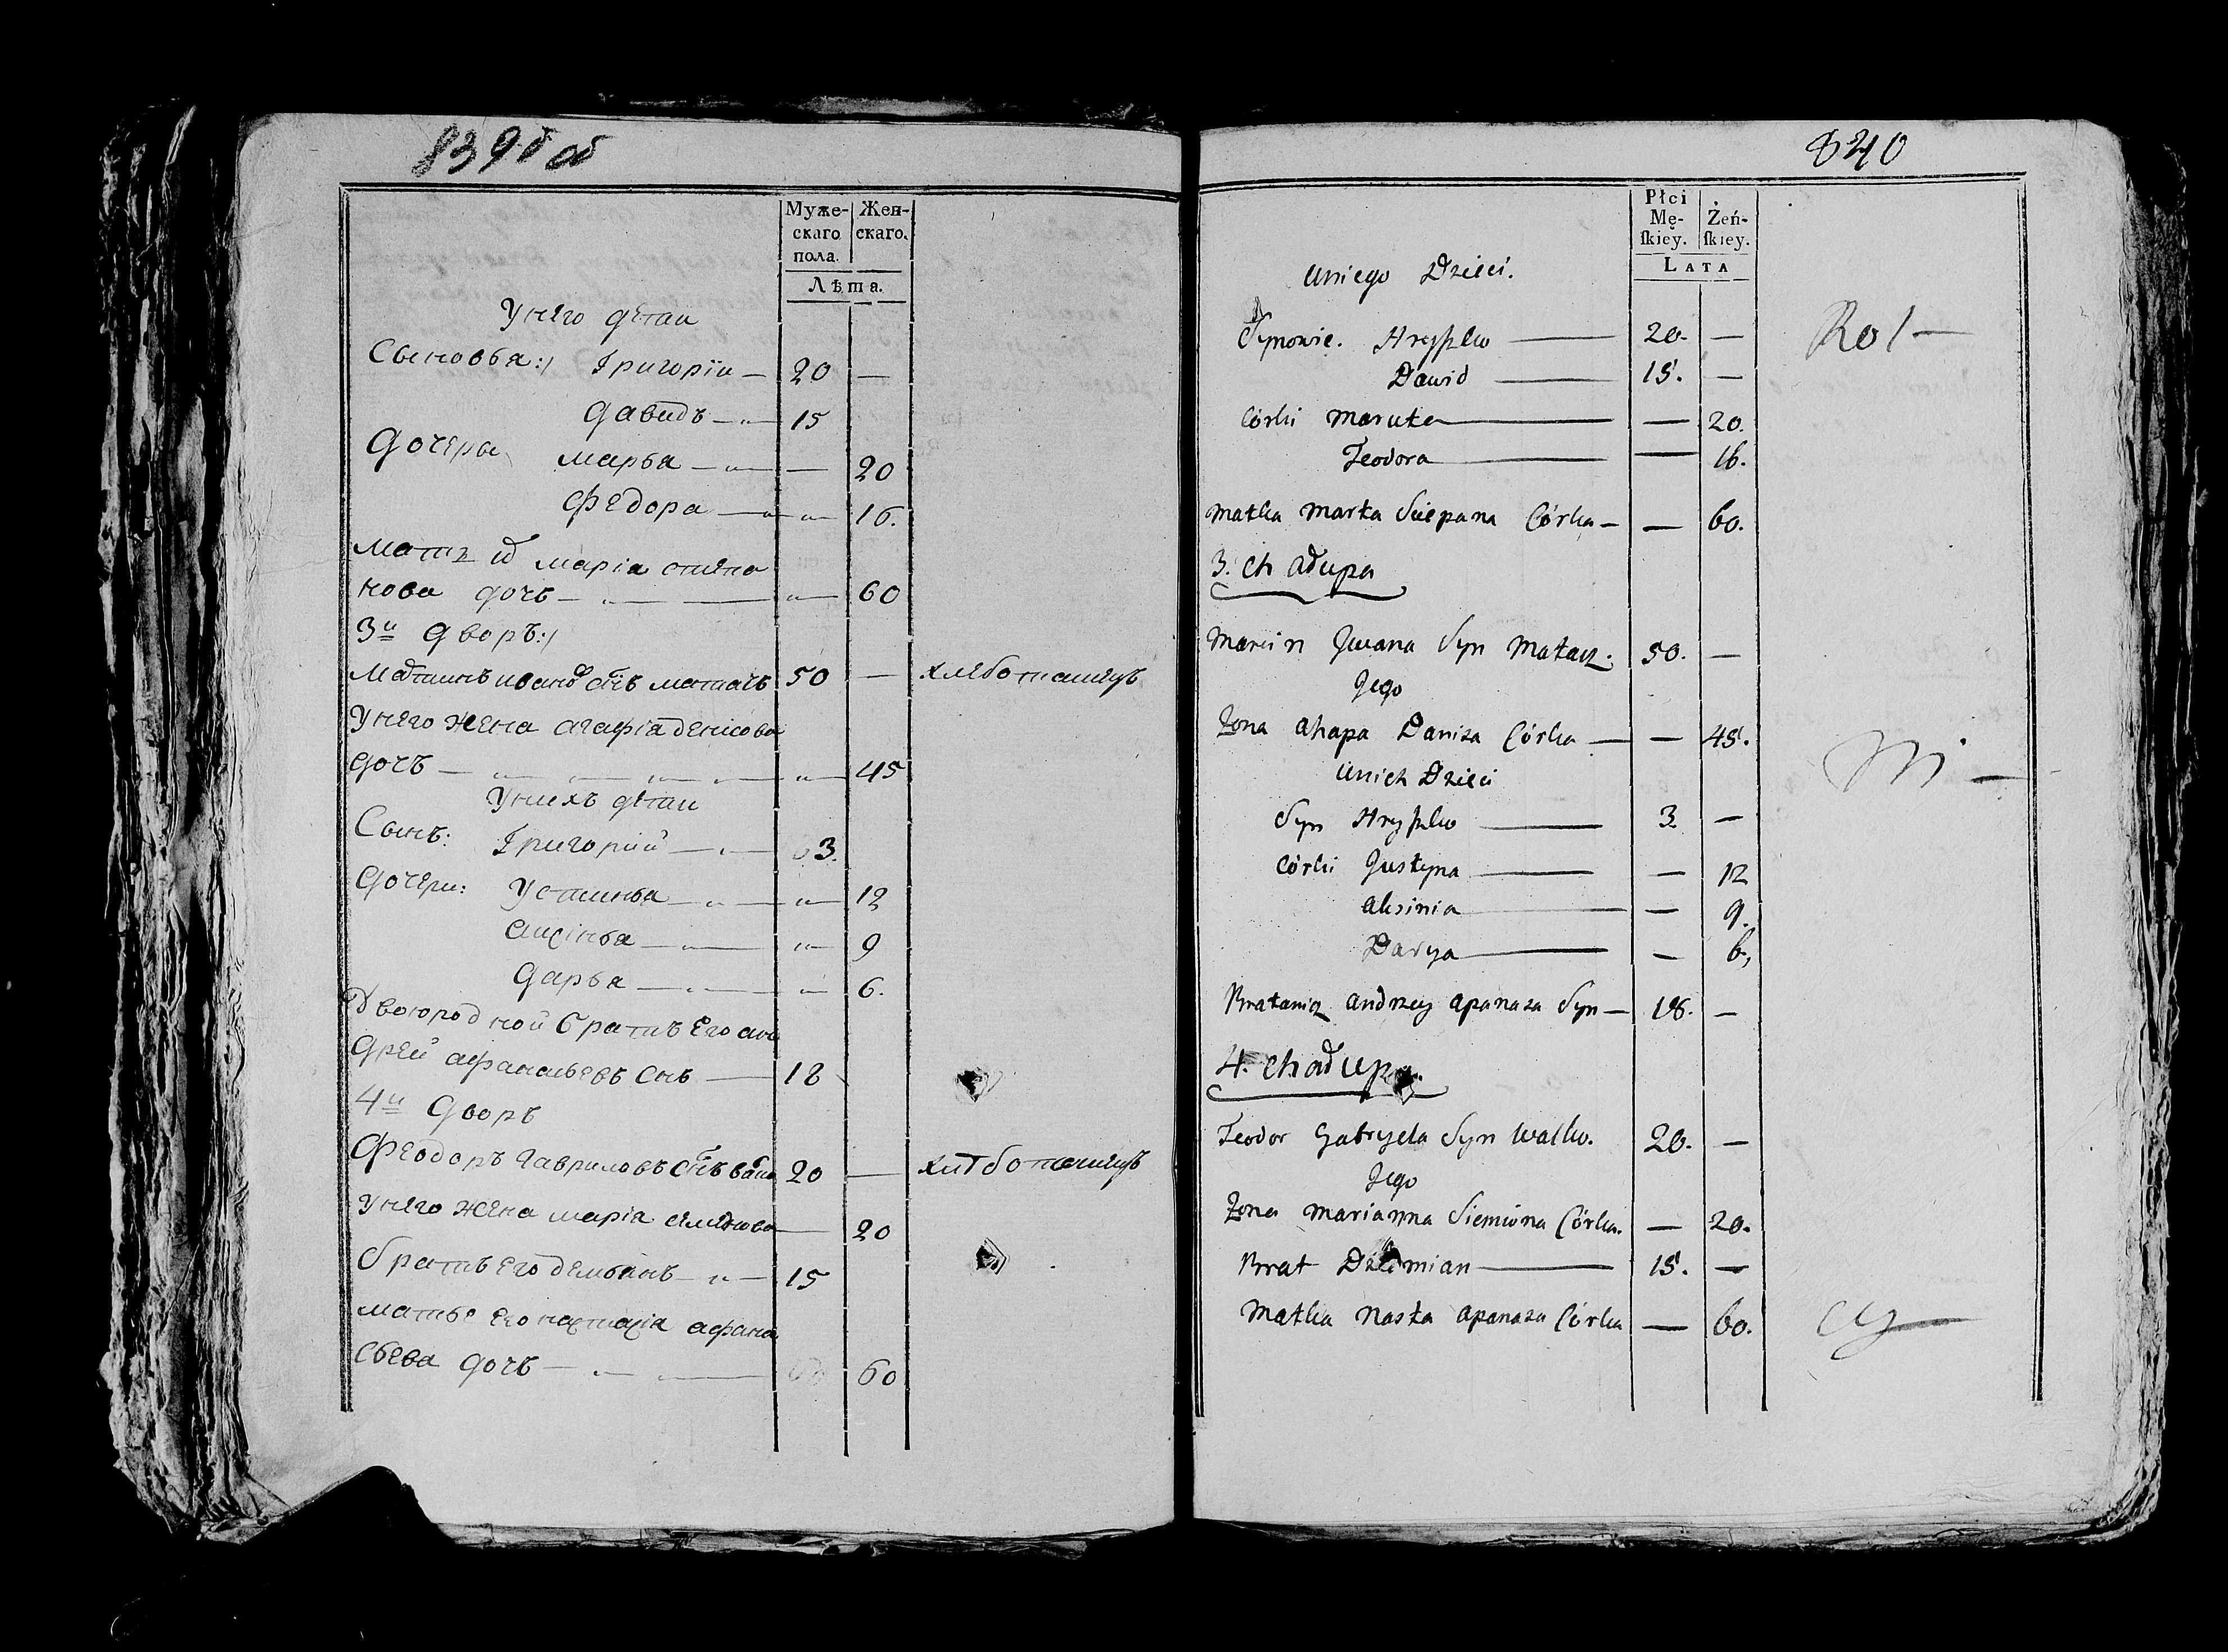 839 об
Мужескаго пола. Женскаго.
Лѣта.
У него дети
Сыновья:/ Григоріи — 20 —
Давидъ — 15
Дочери Марья — — 20
Федора — — 16.
мать его марія степа
нова дочь — — 60
3й Дворъ:/
Мартинъ ивановъ снъ маталъ 50 — хлебопашецъ
У него жена агафіа денисова
дочь — — 45
У нихъ дети
Сынъ: Григории — 3.
Дочери: Устинья — — 12
аксинья — — 9
Дарья — — 6.
Двоюродной братъ его ан
дрей афанасьевъ снъ — 18
4й Дворъ
Феодоръ гавриловъ снъ валко 20 — хлебопашецъ
У него жена маріа семенова — 20
братъ его демьянъ — 15
мать его настасіа афана
сьева дочь — 60
840
Płci Męſkiey. Żeńſkiey.
LATA
Uniego Dzieci.
Synowie. Hryszko — 20. —
Dawid — 15. —
Córki Maruta — — 20.
Teodora — — 16.
Matka Marta Sciepana Córka — — 60.
3. Chałupa
Marcin Jwana Syn Matacz. 50. —
Jego
Żona Ahapa Daniza Córka — — 45.
Unich Dzieci
Syn Hryszko — 3 —
Córki Justyna — — 12
Aksinia — — 9.
Darya — — 6.
Bratanicz Andrzey Apanaza Syn — 18. —
4. Chałupa.
Teodor Gabryela Syn Walko. 20. —
Jego
Żona Marianna Siemiona Córka. — 20.
Brat Dziemian — 15. —
Matka Nasta Apanaza Córka — 60.